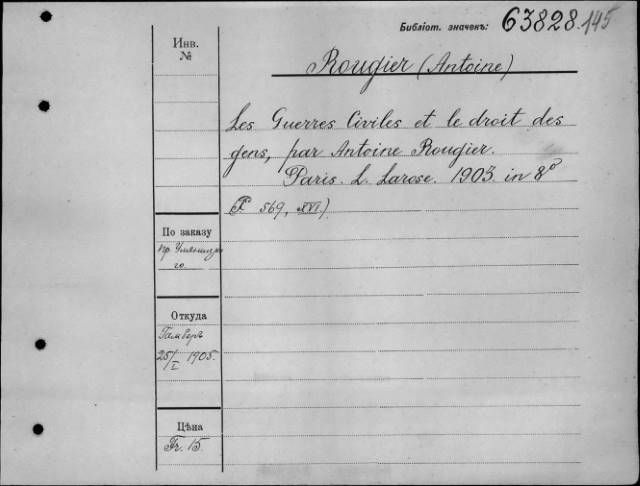 Библіот. значекъ: 63828.145
Инв.
№
Rougier (Antoine)
Les Guerres Civiles et le droit des
gens, par Antoine Rougier.
Paris. L. Larose. 1903. in 8º
569, XVI)
По заказу
пр.
го.
Откуда
25/I 1905.
Цѣна
Fr. 15.